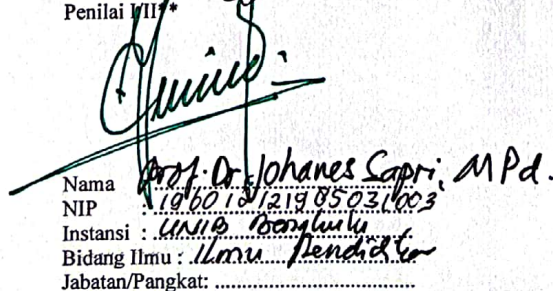 Penilai I/II*
Nama Prof. Dr. Johanes Sapri, M Pd.
NIP : 196012121985031003
Instansi : UNIB Bengkulu
Bidang Ilmu : Ilmu Pendidikan
Jabatan/Pangkat: ................................